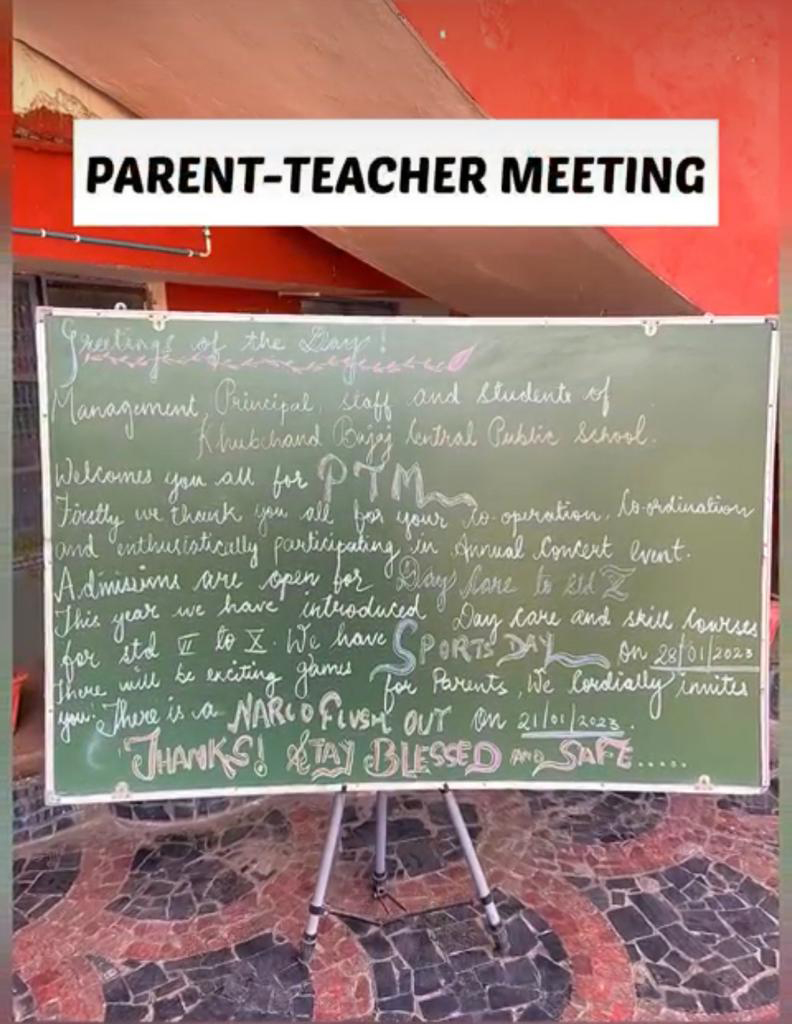 PARENT-TEACHER MEETING
Greetings of the Day!
Management, Principal, staff and students of
Khubchand Bajaj Central Public School.
Welcomes you all for PTM
Firstly we thank you all for your Co-operation, Co-ordination
and enthusiatically participating in Annual Concert event.
Admissions are open for Day Care to std X
This year we have introduced Day care and skill courses
for std VI to X. We have SPORTS DAY on 28/01/2023
There will be exciting games for Parents, We Cordially invites
you! There is a NARCO FLUSH OUT on 21/01/2023.
THANKS! STAY BLESSED AND SAFE.....